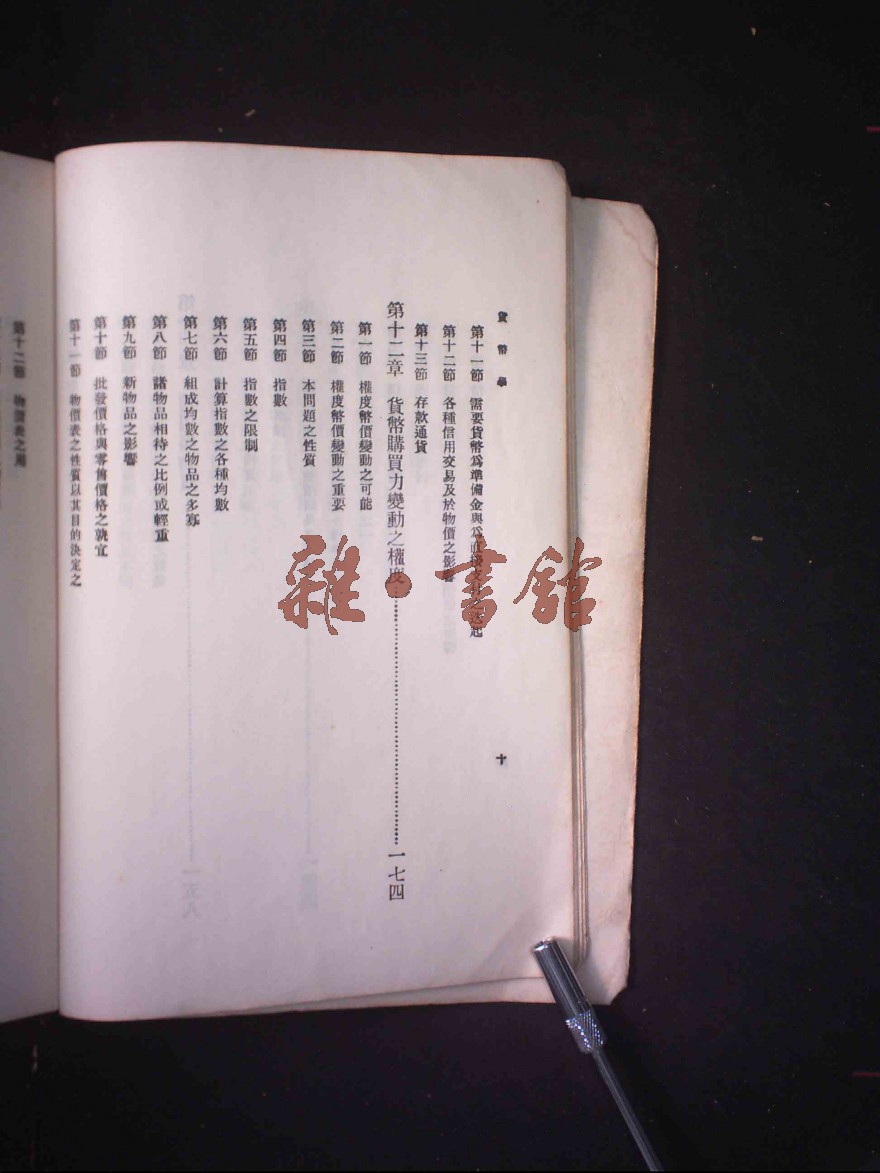 貨幣學
十
第十一節 需要貨幣爲準備金與爲直接支付之
第十二節 各種信用交易及於物價之影響
第十三節 存款通貨
第十二章 貨幣購買力變動之權度……一七四
第一節 權度幣價變動之可能
第二節 權度幣價變動之重要
第三節 本問題之性質
第四節 指數
第五節 指數之限制
第六節 計算指數之各種均數
第七節 組成均數之物品之多寡
第八節 諸物品相待之比例或輕重
第九節 新物品之影響
第十節 批發價格與零售價格之孰宜
第十一節 物價表之性質以其目的決定之
第十二節 物價表之用
雜·書館